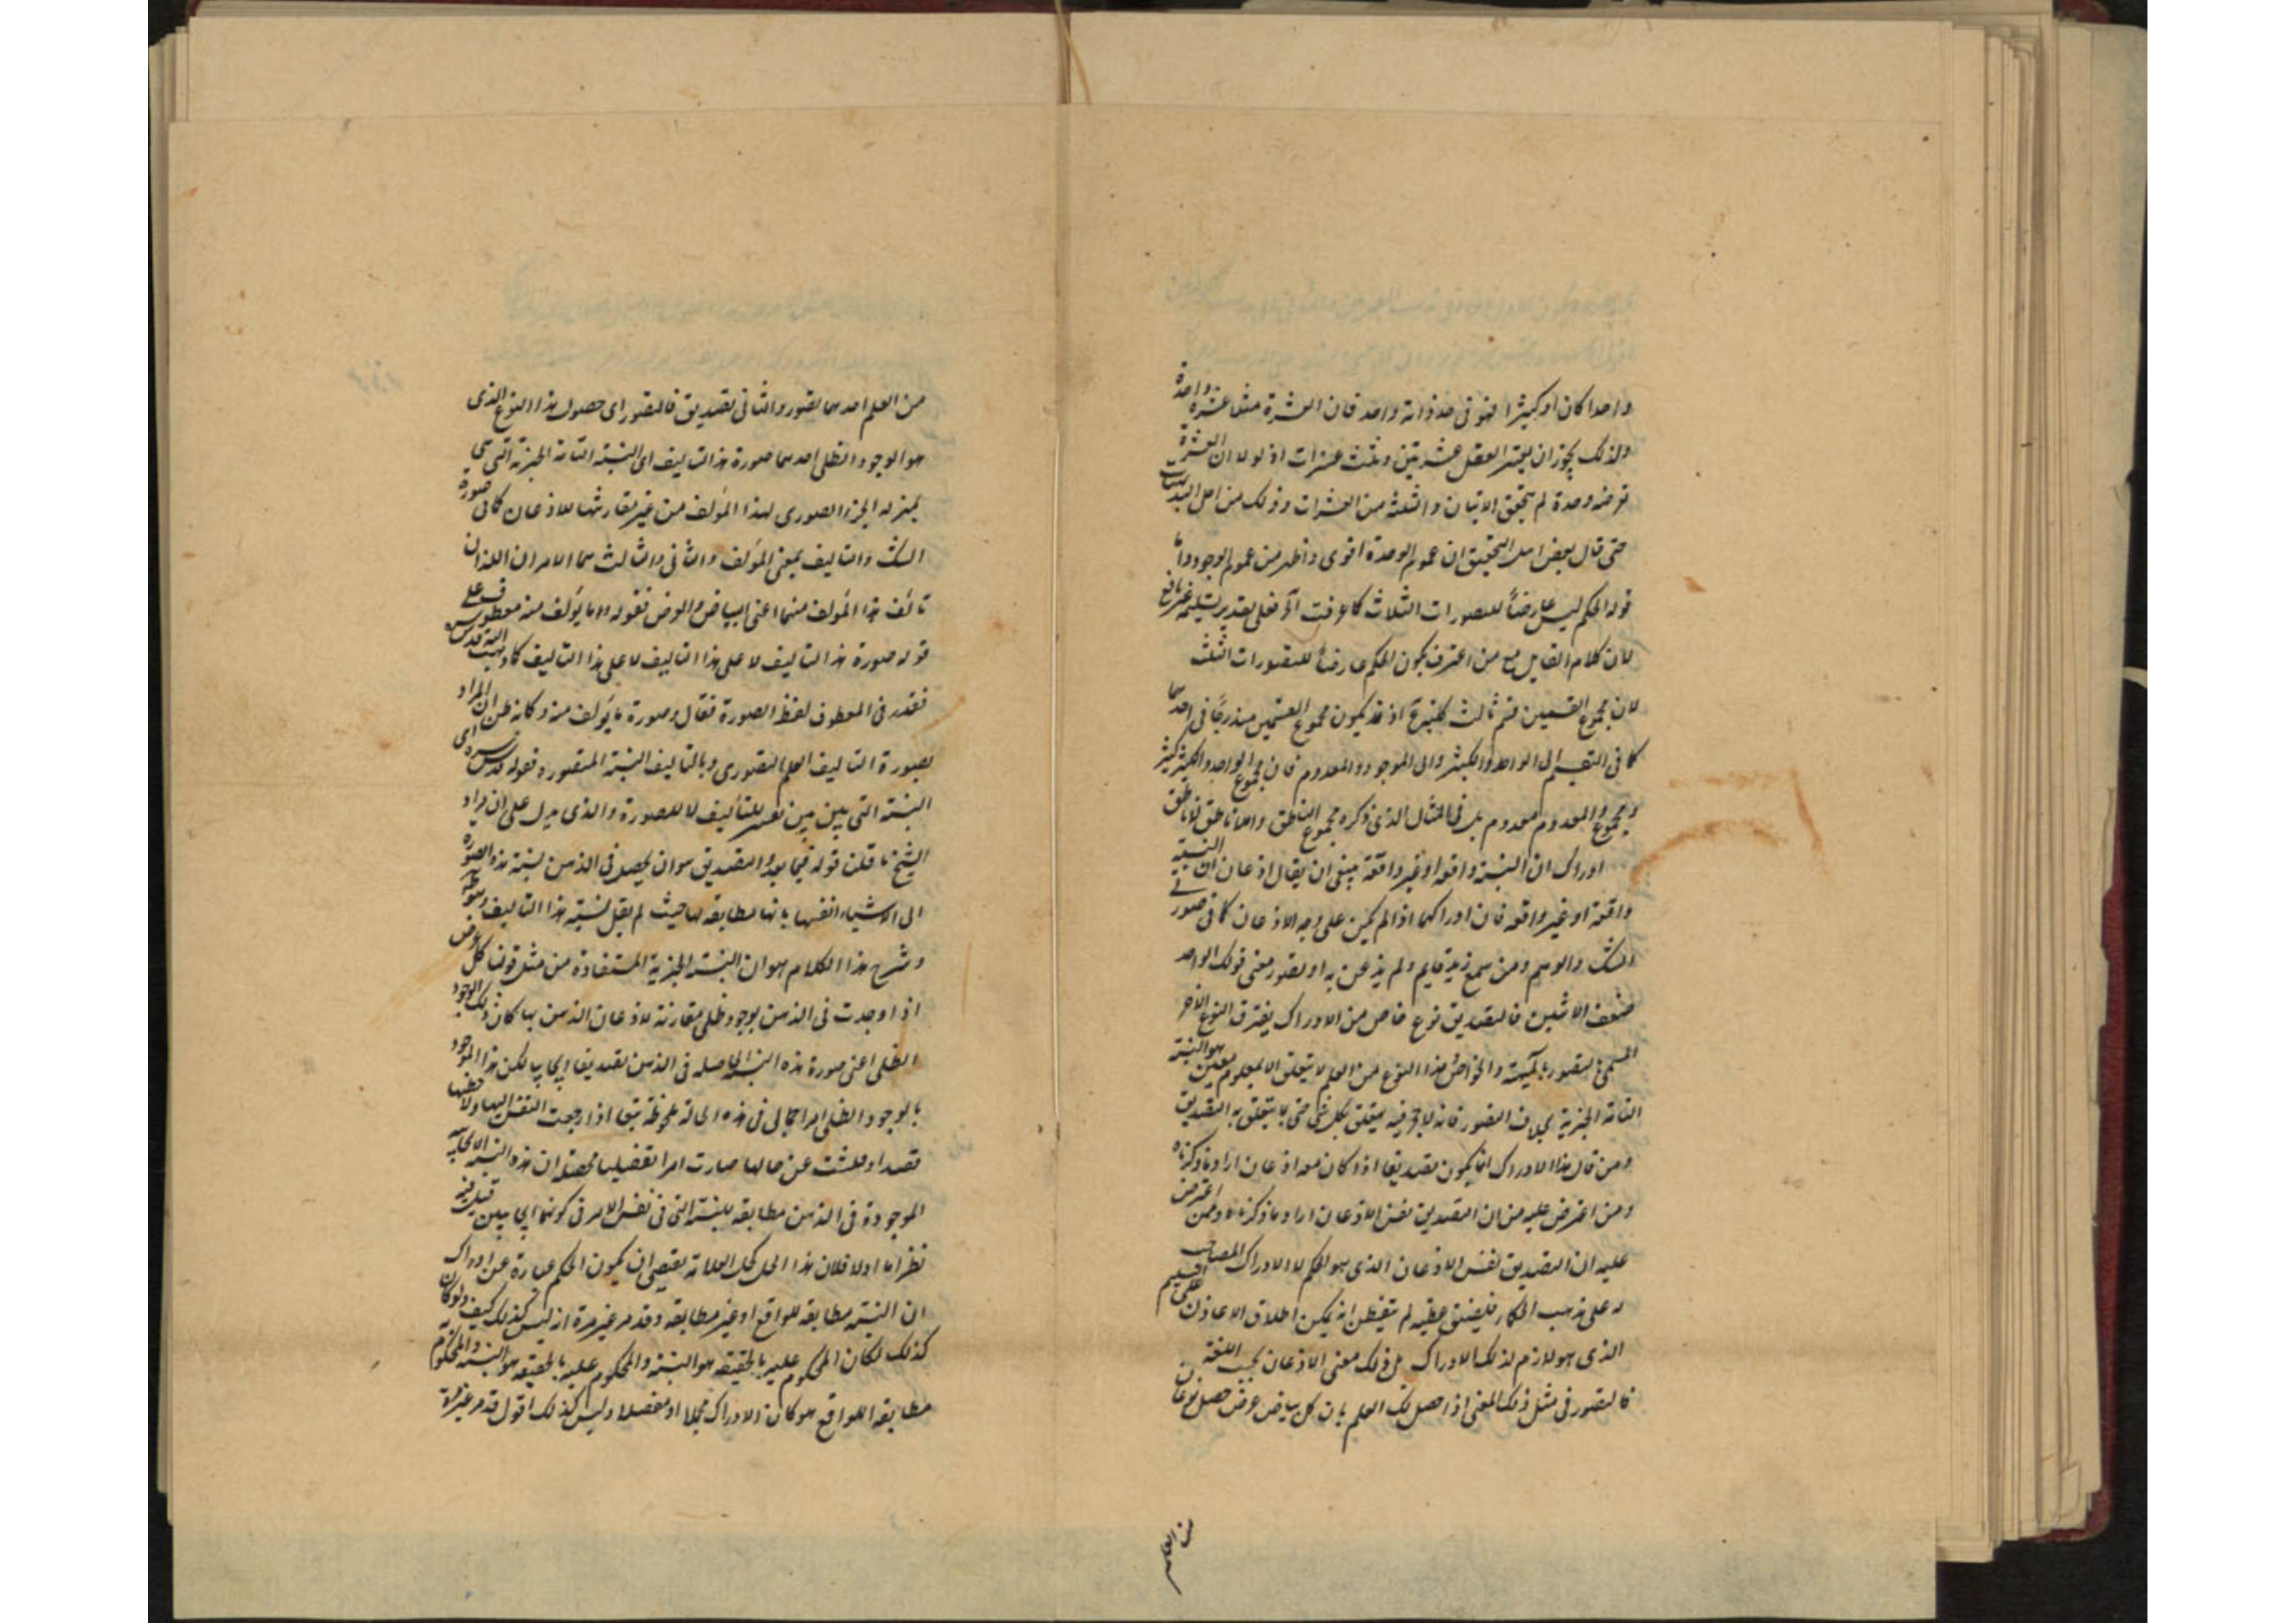 واحدا كان او كثيرا فهو فى حد ذاته واحد فان العشرة مثلا عشرة واحدة
ولذلك يجوز ان يعتبر العقل عشرتين وثلث عشرات اذ لولا ان العشرة
وحدة لم يتحقق الاثنان والثلثة من العشرات وذلك من اجل البديهيات
حتى قال بعض اهل التحقيق ان عموم الوحدة اقوى واظهر من عموم الوجود واما
قوله الحكم ليس عارضاً للتصورات الثلاث كما عرفت آه فعلى تقدير تسليمه غير نافع
لان كلام القايل مع من اعترف بكون الحكم عارضاً للتصورات الثلث
لان مجموع القسمين قسم ثالث اذ قد يكون مجموع القسمين مندرجاً فى احدهما
كما فى التقسيم الى الواحد والكثير والى الموجود والمعدوم فان مجموع الواحد والكثير كثير
ومجموع والمعدوم معدوم بل فى المثال الذى ذكره مجموع الناطق واللاناطق لاناطق
ادراك ان النسبة واقعة او غير واقعة ينبغى ان يقال اذعان ان النسبة
واقعة او غير واقعة فان ادراكها اذا لم يكن على وجه الاذعان كما فى صور
الشك والوهم ومن سمع زيد قايم ولم يذعن به او تصور معنى قولك الواحد
ضعف الاثنين فالتصديق نوع خاص من الادراك يفترق النوع الآخر
المسمى بالتصور والخواص وهذا النوع من العلم لا يتعلق الا بمعلوم معين هو النسبة
التامة الخبرية بخلاف التصور فانه لا حجر فيه يتعلق بكل شئ حتى بما يتعلق به التصديق
ومن قال هذا الادراك انما يكون تصديقا اذا كان معه اذعان اراد ما ذكرناه
ومن اعترض عليه من ان التصديق نفس الاذعان اراد ما ذكرناه وممن اعترض
عليه ان التصديق نفس الاذعان الذى هو الحكم لا الادراك المصاحب
له على مذهب الحكماء لم يتفطن انه يمكن اطلاق الاذعان على
الذى هو لازم لذلك الادراك بل ذلك معنى الاذعان بحسب اللغة
فالتصور فى مثل ذلك المعنى اذا حصل لك العلم بان كل بياض عرض حصل نوعان
من العلم
من العلم احدهما تصور والثانى تصديق فالتصور اى حصول هذا النوع الذى
هو الوجود الظلى احدهما صورة هذا التاليف اى النسبة التامة الخبرية التى هى
بمنزلة الجزء الصورى لهذا المؤلف من غير مقارنتها للاذعان كما فى صورة
الشك والتاليف بمعنى المؤلف والثانى والثالث هما الامران اللذان
تالف هذا المؤلف منهما اعنى البياض والعرض فقوله وما يؤلف منه معطوف على
قوله صورة هذا التاليف لا على هذا التاليف لا على هذا التاليف كما
فقدر فى المعطوف لفظ الصورة فقال وصورة ما يؤلف منه وكانه ظن ان المراد
بصورة التاليف العلم التصورى وبالتاليف النسبة المتصورة وقوله قدس سره اى
النسبة التى بين بين تفسير للتأليف لا للصورة والذى يدل على ان مراد
الشيخ ما قلت قوله فيما بعد والتصديق هو ان يحصل فى الذهن نسبة هذه الصورة
الى الاشياء انفسها بانها مطابقة لها حيث لم يقل نسبة هذا التاليف
وشرح هذا الكلام هو ان النسبة الخبرية المستفادة من مثل قولنا كل عرض
اذا وجدت فى الذهن بوجود ظلى مقارنة لاذعان الذهن بها كان ذلك الوجود
الظلى اعنى صورة هذه النسبة الحاصلة فى الذهن تصديقا ايجابيا لكن هذا الموجود
بالوجود الظلى امر اجمالى فى هذه الحالة ملحوظة تبعا اذا رجعت النفس اليها ولاحظتها
قصدا وفتشت عن حالها صارت امرا تفصيليا محصله ان هذه النسبة الايجابية
الموجودة فى الذهن مطابقة للنسبة التى فى نفس الامر فى كونها ايجابيين قيل فيه
نظر اما اولا فلان هذا الحل لحل العلامة يقتضى ان يكون الحكم عبارة عن ادراك
ان النسبة مطابقة للواقع او غير مطابقة وقد مر غير مرة انه ليس كذلك كيف ولو كان
كذلك لكان المحكوم عليه بالحقيقة هو النسبة والمحكوم عليه بالحقيقة هو النسبة والمحكوم
مطابقة للواقع هو كان الادراك مجملا او مفصلا وليس كذلك اقول قد مر غير مرة